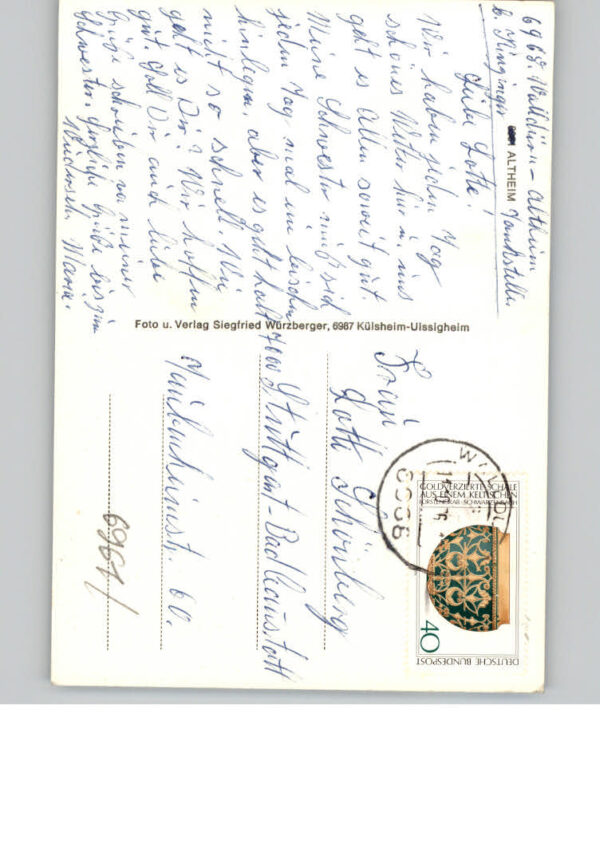 6968. Walldürn - Altheim
b. Künzinger Tankstelle.
ALTHEIM
Liebe Lotte!
Wir haben jeden Tag
schönes Wetter hier u. uns
geht es allen soweit gut.
Meine Schwester muß sich
jeden Tag mal ein bischen
hinlegen, aber es geht halt
nicht so schnell. Wie
geht es Dir? Wir hoffen
gut. Soll Dir auch liebe
Grüße schreiben von meiner
Schwester. Herzliche Grüße bis zum
Wiedersehn Mama.
Foto u. Verlag Siegfried Würzberger, 6987 Külsheim-Uissigheim
Frau
Lotte Schönberg
7000 Stuttgart-Bad Cannstatt
60.
6961/
WALLDÜ
6968
GOLDVERZIERTE SCHALE
AUS EINEM KELTISCHEN
FÜRSTENGRAB · SCHWARZENBACH
40
DEUTSCHE BUNDESPOST